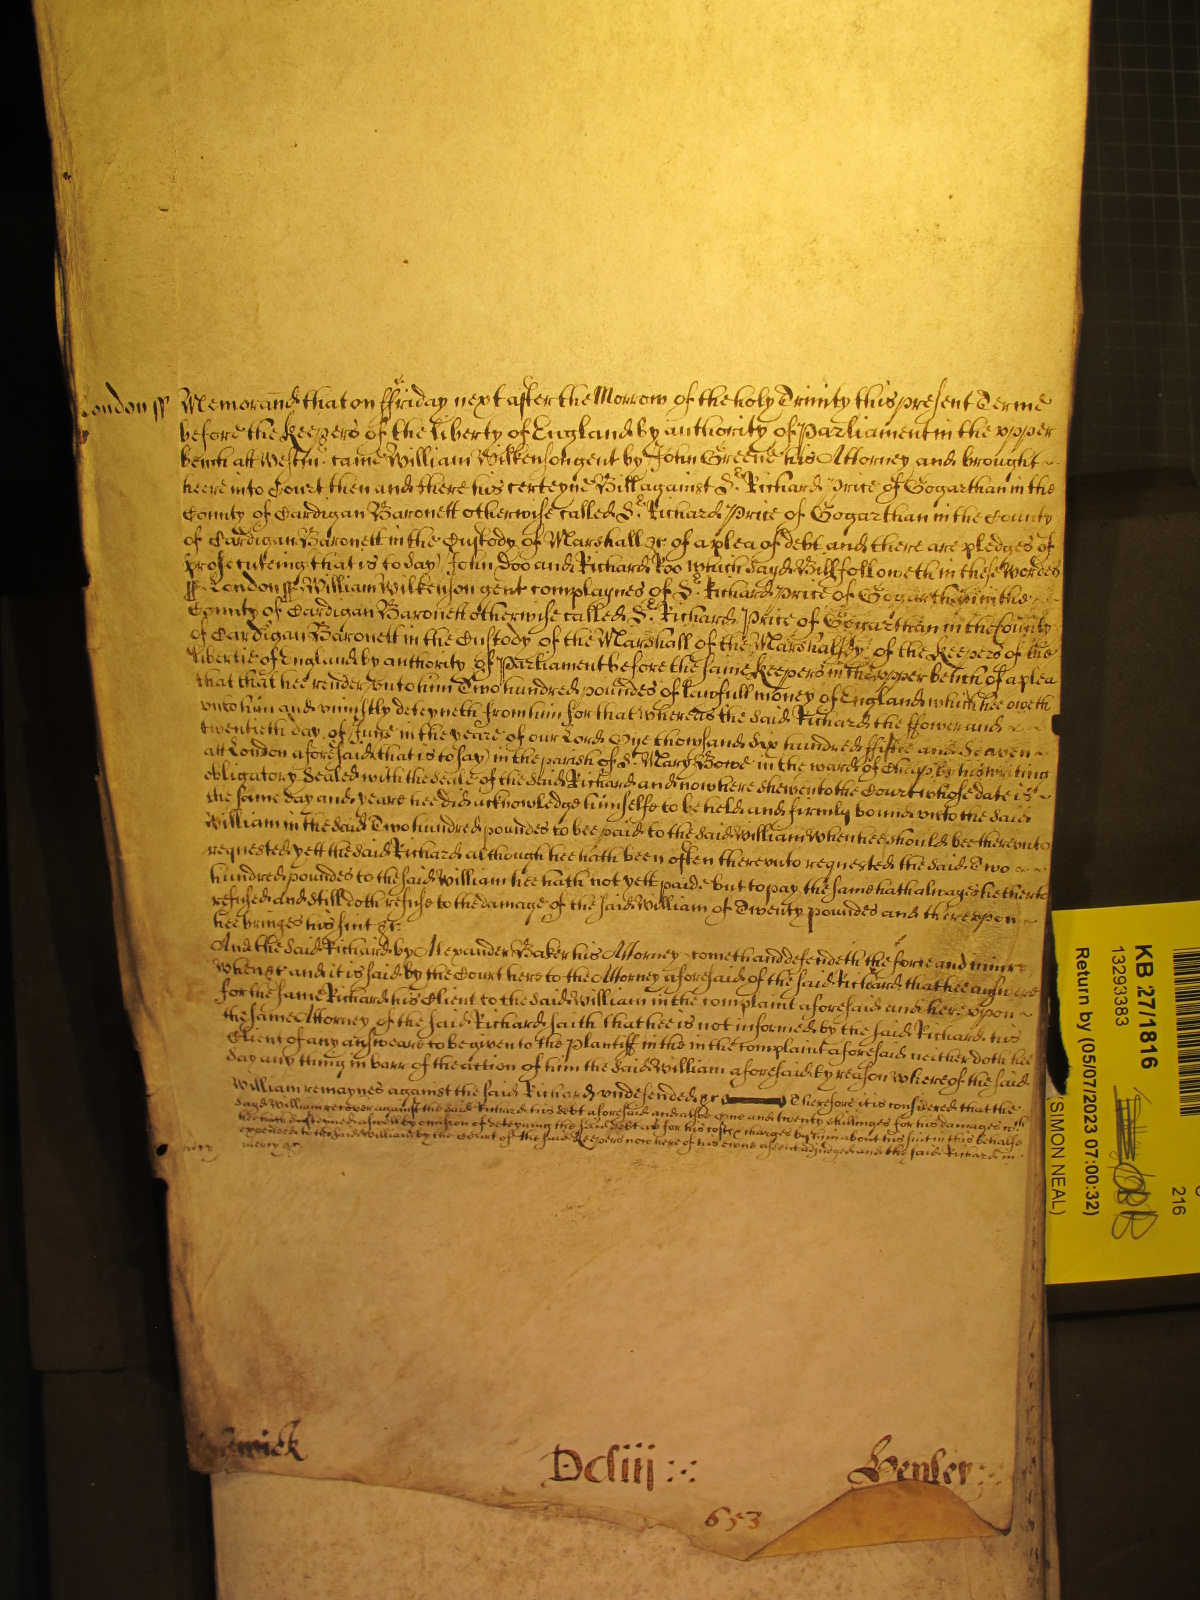 London ss Memorand that on ffriday next after the Morrow of the holy Trinity this present Terme
before the Keepers of the liberty of England by authority of Parliament in the vpper
bench att Westm. came William Wilkenson gent by John Greene his Attorney and brought
heere into Court then and there his certeyne Bill against Sr. Richard Price of Gogarthan in the
County of Cardigan Baronett otherwise called Sr. Richard Price of Gogarthan in the County
of Cardigan Baronett in the Custody of Marshall &c of a plea of debt and there are pledges of
prosecuteing that is to say John Doo and Richard Roo which sayd Bill followeth in these wordes
ss. London ss. William Wilkenson gent complaynes of Sr. Richard Price of Gogarthan in the
County of Cardigan Baronett otherwise called Sr. Richard Price of Gogarthan in the County
of Cardigan Baronett in the Custody of the Marshall of the Marshalsey of the Keepers of the
libertie of England by authority of Parliament before the same Keepers in the vpper bench of a plea
that that hee render vnto him Two hundred poundes of lawfull money of England which hee oweth
vnto him and vniustly deteyneth from him for that whereas the said Richard the ffower and
twentieth day of June in the yeare of our Lord One thowsand six hundred fiftie and seaven
att London aforesaid that is to say in the parish of St Mary Bowe in the ward of Cheap by his writing
obligatory Sealed with the seale of the said Richard and now here shewen to the Court whose date is
the same day and yeare hee did acknowledge himselfe to be held and firmly bound vnto the said
William in the said Two hundred poundes to bee paid to the said William when hee should bee therevnto
requested yett the said Richard although hee hath been often therevnto requested the said Two
hundred poundes to the said William hee hath not yett paide but to pay the same hath alwayes hetherto
refused and still doth refuse to the damage of the said William of Twenty poundes and therevpon
hee bringes his suit &c.
And the said Richard by Alexander Baker his Attorney cometh and defendeth the force and iniury
when &c and it is said by the Court here to the Attorney aforesaid of the said Richard that hee answere
for the same Richard his Client to the said William in the complaint aforesaid and herevpon
the same Attorney of the said Richard saith that hee is not informed by the said Richard his
Client of any answeare to be given to the plantiff in the in the complaint aforesaid neither doth hee
say any thing in barr of the action of him the said William aforesaid by reason whereof the said
William remaynes against the said Richard vndefended &c Therefore it is considered that the
sayd William recover against the said Richard his debt aforesaid and alsoe One and twenty shillinges for his damages wch
hee hath susteyned aswell by occasion of deteyning the said debt as for his costes & charges by him about his suit in this behalfe
expended to the said William by the Court of the said Keepers now here of his owne assent adiudged and the said Richard in
mercy &c
Dcliij
Henley
653
KB 27/1816
13293383
Return by (05/07/2023 07:00:32)
(SIMON NEAL)
216